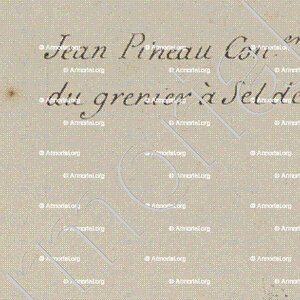 Jean Pineau Con.er
du grenier à Sel de
© Armorial.org © Armorial.org © Armorial.org
© Armorial.org © Armorial.org
© Armorial.org © Armorial.org © Armorial.org
© Armorial.org © Armorial.org
© Armorial.org © Armorial.org © Armorial.org
© Armorial.org © Armorial.org
© Armorial.org © Armorial.org © Armorial.org
© Armorial.org © Armorial.org
© Armorial.org © Armorial.org © Armorial.org
© Armorial.org © Armorial.org